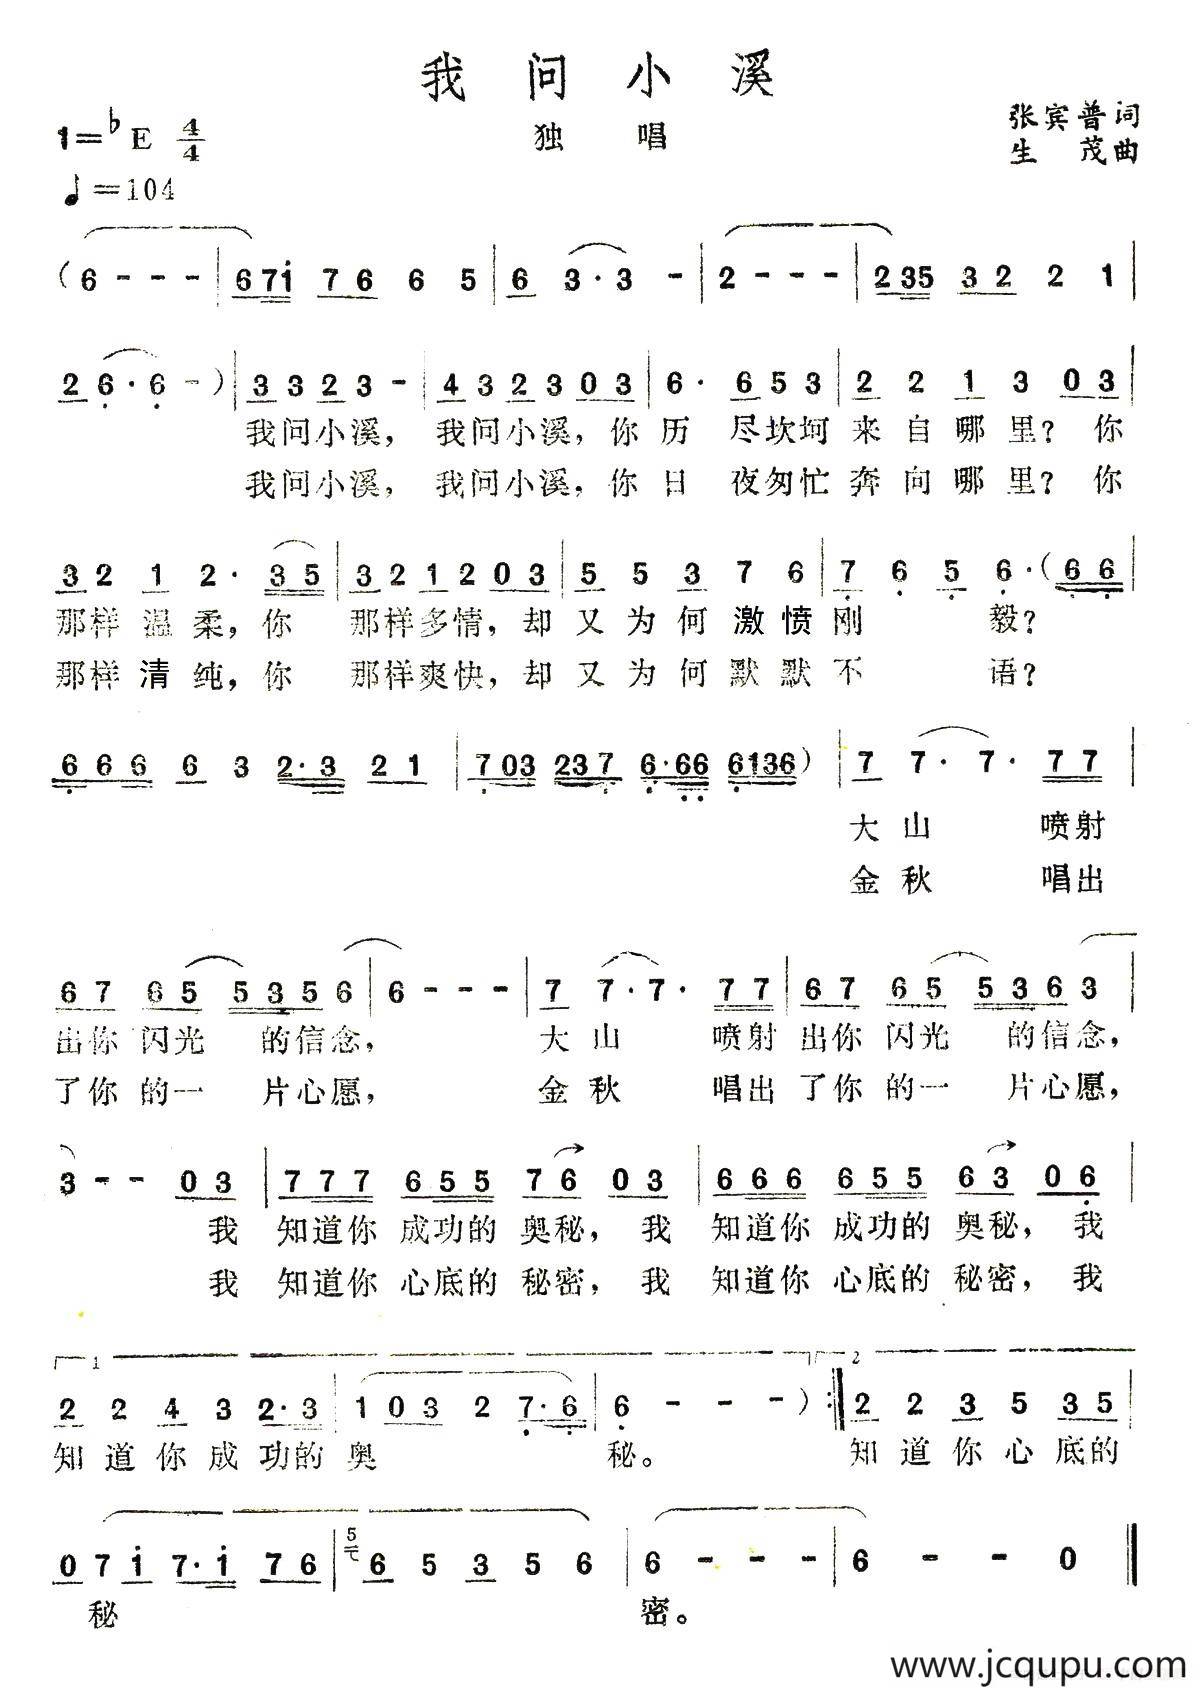 我问小溪
1=♭E 4/4
独唱
张宾普词
生茂曲
♩=104
(6 - - - | 671 76 6 5 | 6 3·3 - | 2 - - - | 235 32 2 1 |
2 6·6 -) | 3323 - | 4323 03 | 6· 653 | 2 2 1 3 03 |
我问小溪，我问小溪，你历 尽坎坷来自哪里？你
我问小溪，我问小溪，你日 夜匆忙奔向哪里？你
32 1 2· 35 | 321203 | 5 5 3 7 6 | 7 6 5 6·(66 |
那样温柔，你 那样多情，却又为何激愤刚 毅？
那样清纯，你 那样爽快，却又为何默默不 语？
666 6 3 2·3 21 | 703 237 6·66 6136) | 7 7·7· 77 |
大山 喷射
金秋 唱出
67 65 5356 | 6 - - - | 7 7·7· 77 | 67 65 5363 |
出你闪光 的信念， 大山 喷射出你闪光 的信念，
了你的一 片心愿， 金秋 唱出了你的一 片心愿，
3 - - 03 | 777 655 76 03 | 666 655 63 06 |
我 知道你成功的奥秘，我 知道你成功的奥秘，我
我 知道你心底的秘密，我 知道你心底的秘密，我
1 2
2 2 4 3 2·3 | 103 2 7·6 | 6 - - -) :| 2 2 3 5 35 |
知道你成功的奥 秘。 知道你心底的
5
0 7 1 7·1 76 | 6 5 3 5 6 | 6 - - - | 6 - - 0 ‖
秘 密。
www.jcqupu.com